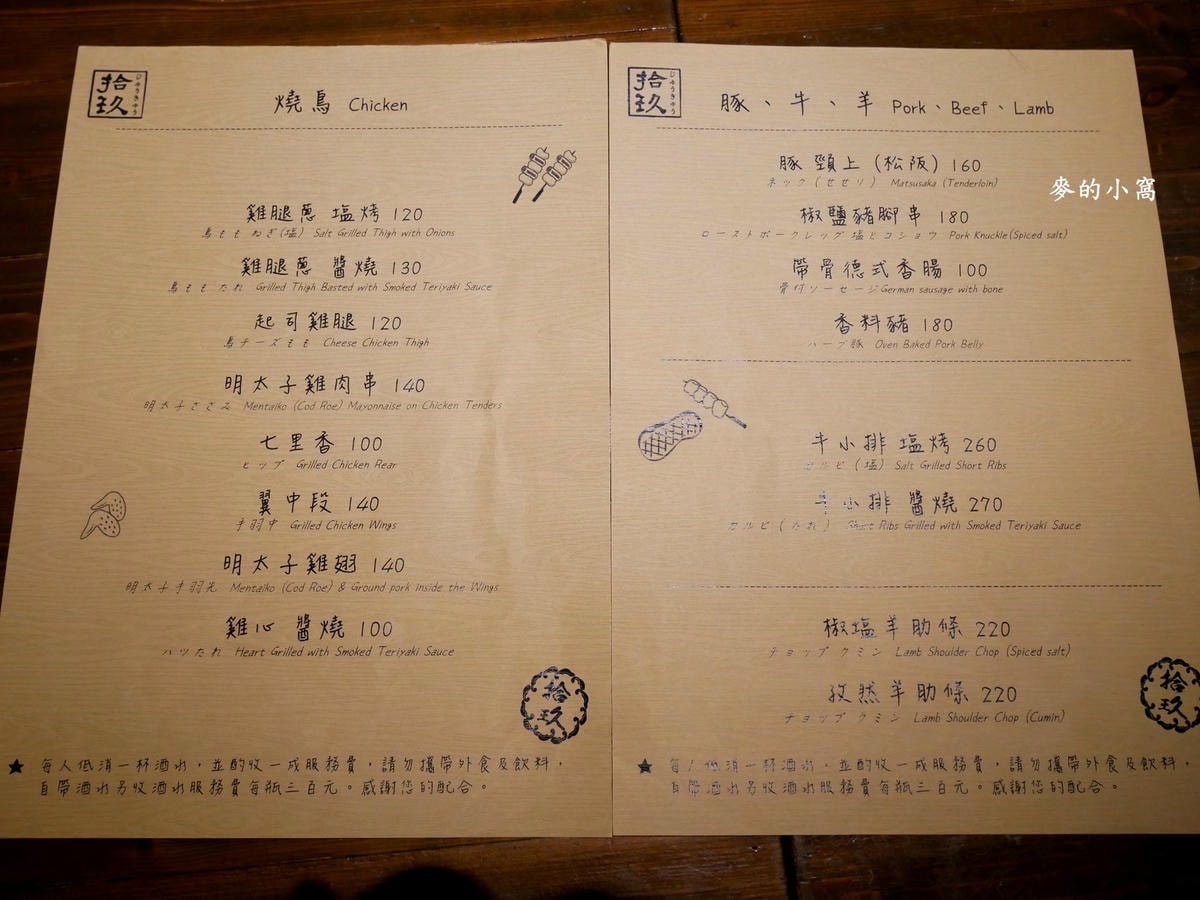 拾玖
じゅうきゅう
燒鳥 Chicken
雞腿蔥 塩烤 120
鳥もも ねぎ(塩) Salt Grilled Thigh with Onions
雞腿蔥 醬燒 130
鳥もも たれ Grilled Thigh Basted with Smoked Teriyaki Sauce
起司雞腿 120
鳥チーズもも Cheese Chicken Thigh
明太子雞肉串 140
明太子ささみ Mentaiko (Cod Roe) Mayonnaise on Chicken Tenders
七里香 100
ヒップ Grilled Chicken Rear
翼中段 140
手羽中 Grilled Chicken Wings
明太子雞翅 140
明太子手羽先 Mentaiko (Cod Roe) & Ground pork inside the Wings
雞心 醬燒 100
ハツたれ Heart Grilled with Smoked Teriyaki Sauce
拾玖
★ 每人低消一杯酒水,並酌收一成服務費,請勿攜帶外食及飲料,
自帶酒水另收酒水服務費每瓶三百元。感謝您的配合。
拾玖
じゅうきゅう
豚、牛、羊 Pork、Beef、Lamb
豚頸上(松阪) 160
ネック(せせり) Matsusaka (Tenderloin)
麥的小窩
椒鹽豬腳串 180
ローストポークレッグ塩とコショウ Pork Knuckle(Spiced salt)
帶骨德式香腸 100
骨付ソーセージGerman sausage with bone
香料豬 180
ハーブ豚 Oven Baked Pork Belly
牛小排 塩烤 260
カルビ(塩) Salt Grilled Short Ribs
牛小排 醬燒 270
カルビ(たれ) Short Ribs Grilled with Smoked Teriyaki Sauce
椒塩羊肋條 220
チョップ クミン Lamb Shoulder Chop (Spiced salt)
孜然羊肋條 220
チョップ クミン Lamb Shoulder Chop (Cumin)
拾玖
★ 每人低消一杯酒水,並酌收一成服務費,請勿攜帶外食及飲料,
自帶酒水另收酒水服務費每瓶三百元。感謝您的配合。